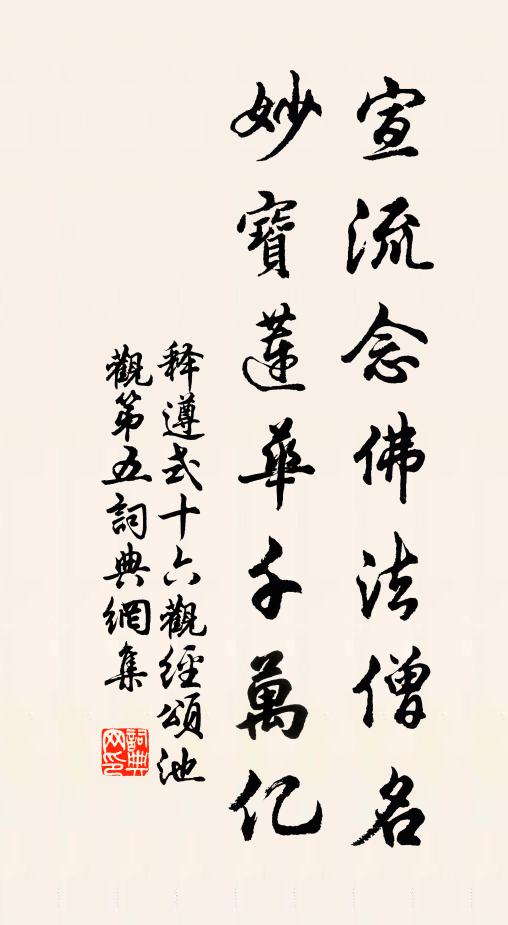 宣流念佛法僧名
妙寶蓮華千萬亿
释遵式十六觀經頌池
觀第五詞典網集
詞典网印